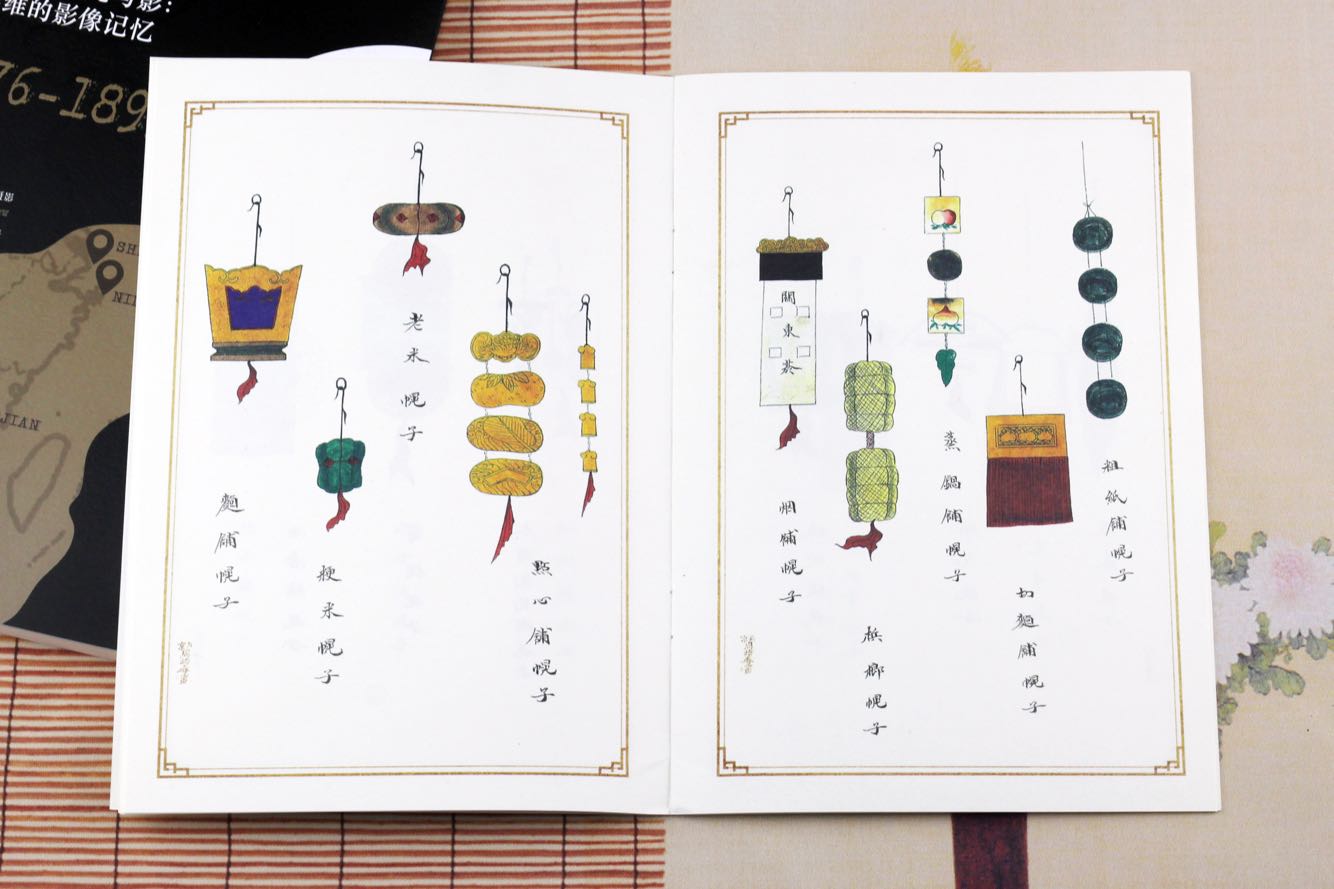 与影:
维的影像记忆
76-189
摄影
SH
NI
JIAN
麵舖幌子
粳米幌子
老米幌子
點心舖幌子
關東菸
烟舖幌子
檳榔幌子
蒸鍋舖幌子
切麵舖幌子
粗紙舖幌子